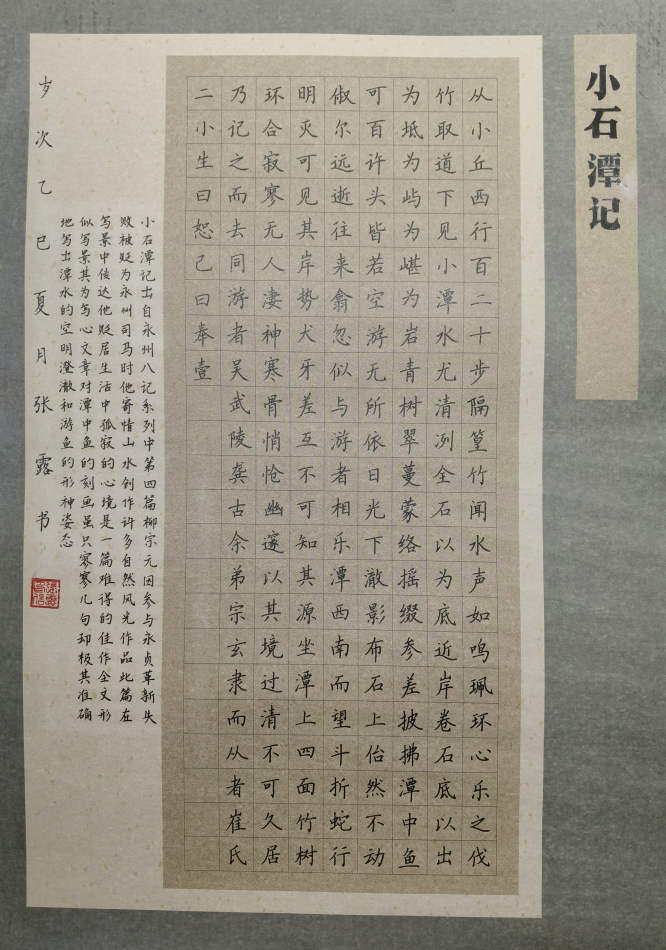 小石潭记
从小丘西行百二十步隔篁竹闻水声如鸣珮环心乐之伐
竹取道下见小潭水尤清冽全石以为底近岸卷石底以出
为坻为屿为嵁为岩青树翠蔓蒙络摇缀参差披拂潭中鱼
可百许头皆若空游无所依日光下澈影布石上佁然不动
俶尔远逝往来翕忽似与游者相乐潭西南而望斗折蛇行
明灭可见其岸势犬牙差互不可知其源坐潭上四面竹树
环合寂寥无人凄神寒骨悄怆幽邃以其境过清不可久居
乃记之而去同游者吴武陵龚古余弟宗玄隶而从者崔氏
二小生曰恕己曰奉壹
小石潭记出自永州八记系列中第四篇柳宗元因参与永贞革新失
败被贬为永州司马时他寄情山水创作许多自然风光作品此篇在
写景中传达他贬居生活中孤寂的心境是一篇难得的佳作全文形
似写景其为写心文章对潭中鱼的刻画虽只寥寥几句却极其准确
地写出潭水的空明澄澈和游鱼的形神姿态
岁次乙巳夏月张露书